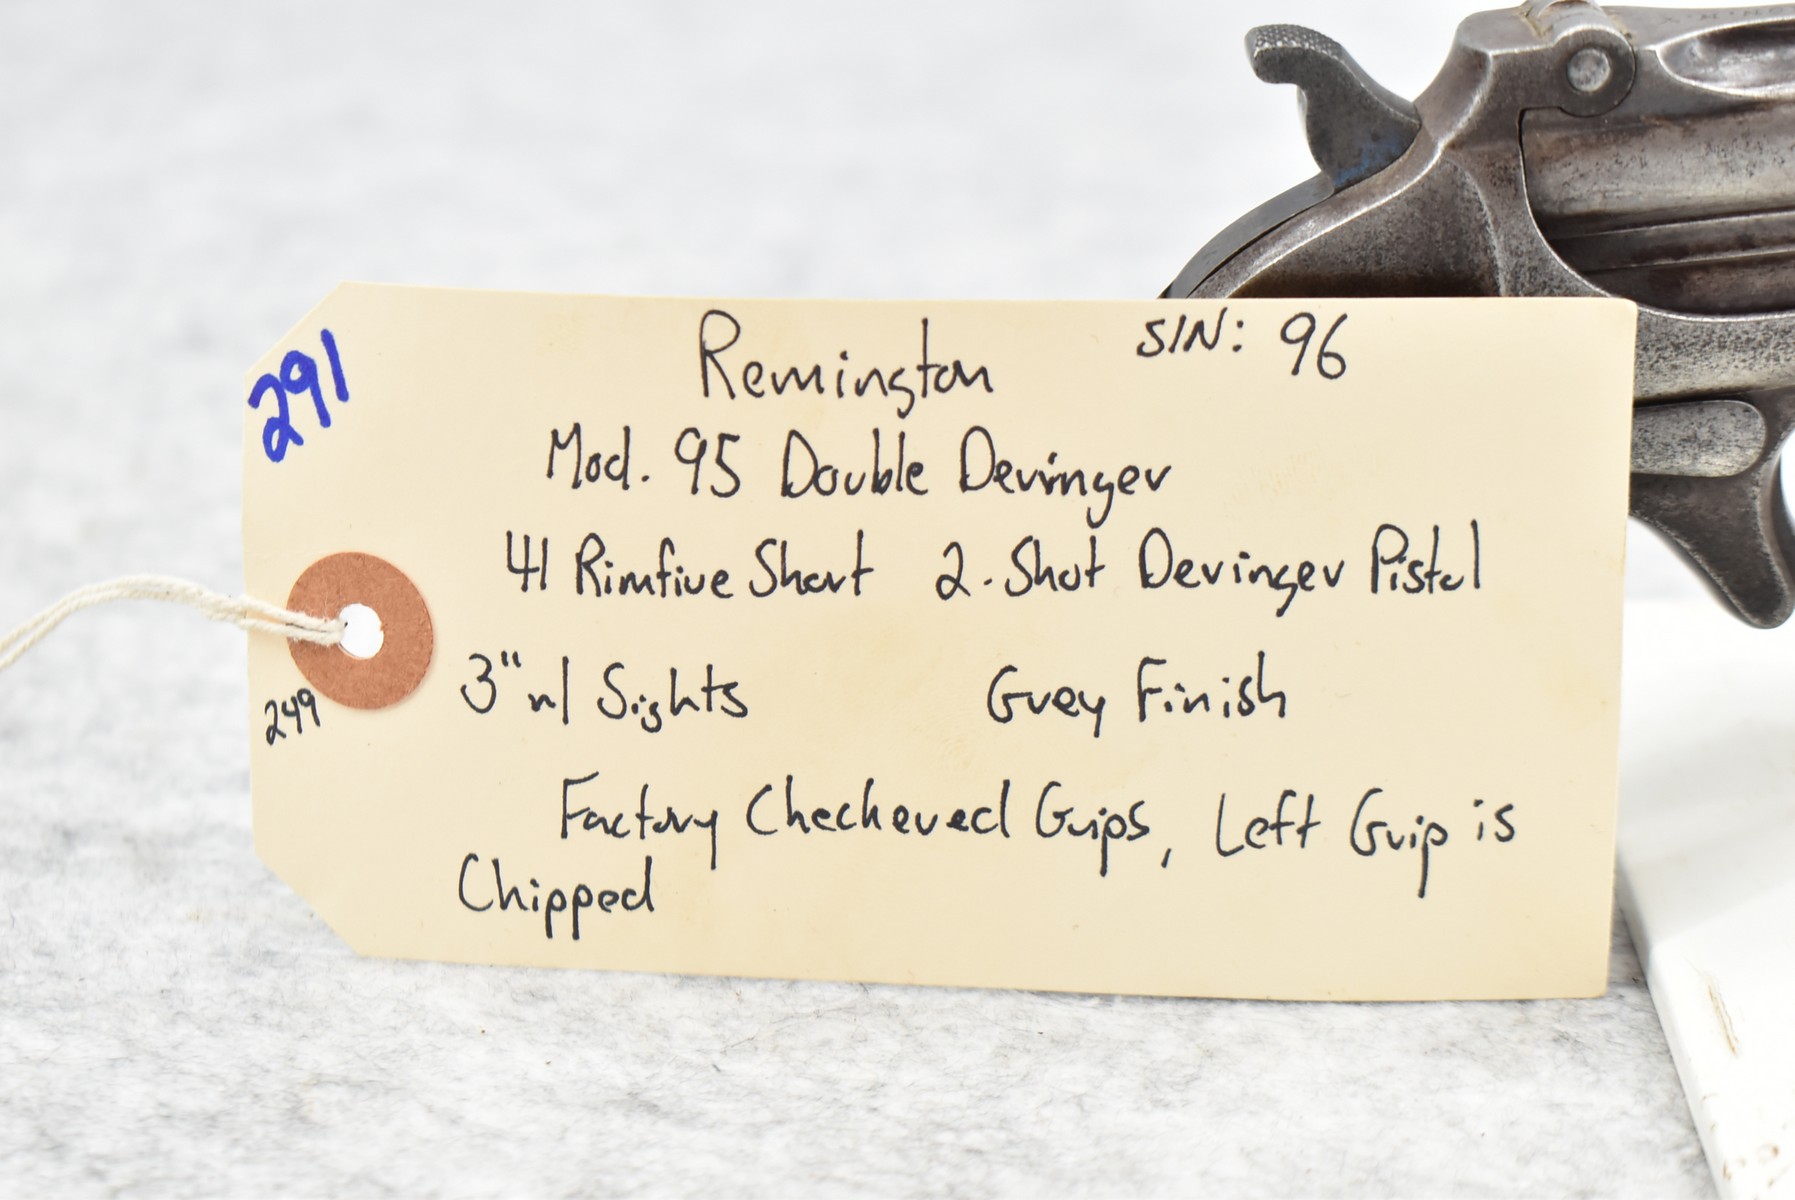 291
Remington S/N: 96
Mod. 95 Double Derringer
41 Rimfire Short 2-Shot Derringer Pistol
3" w/ Sights Grey Finish
249
Factory Checkered Grips, Left Grip is
Chipped